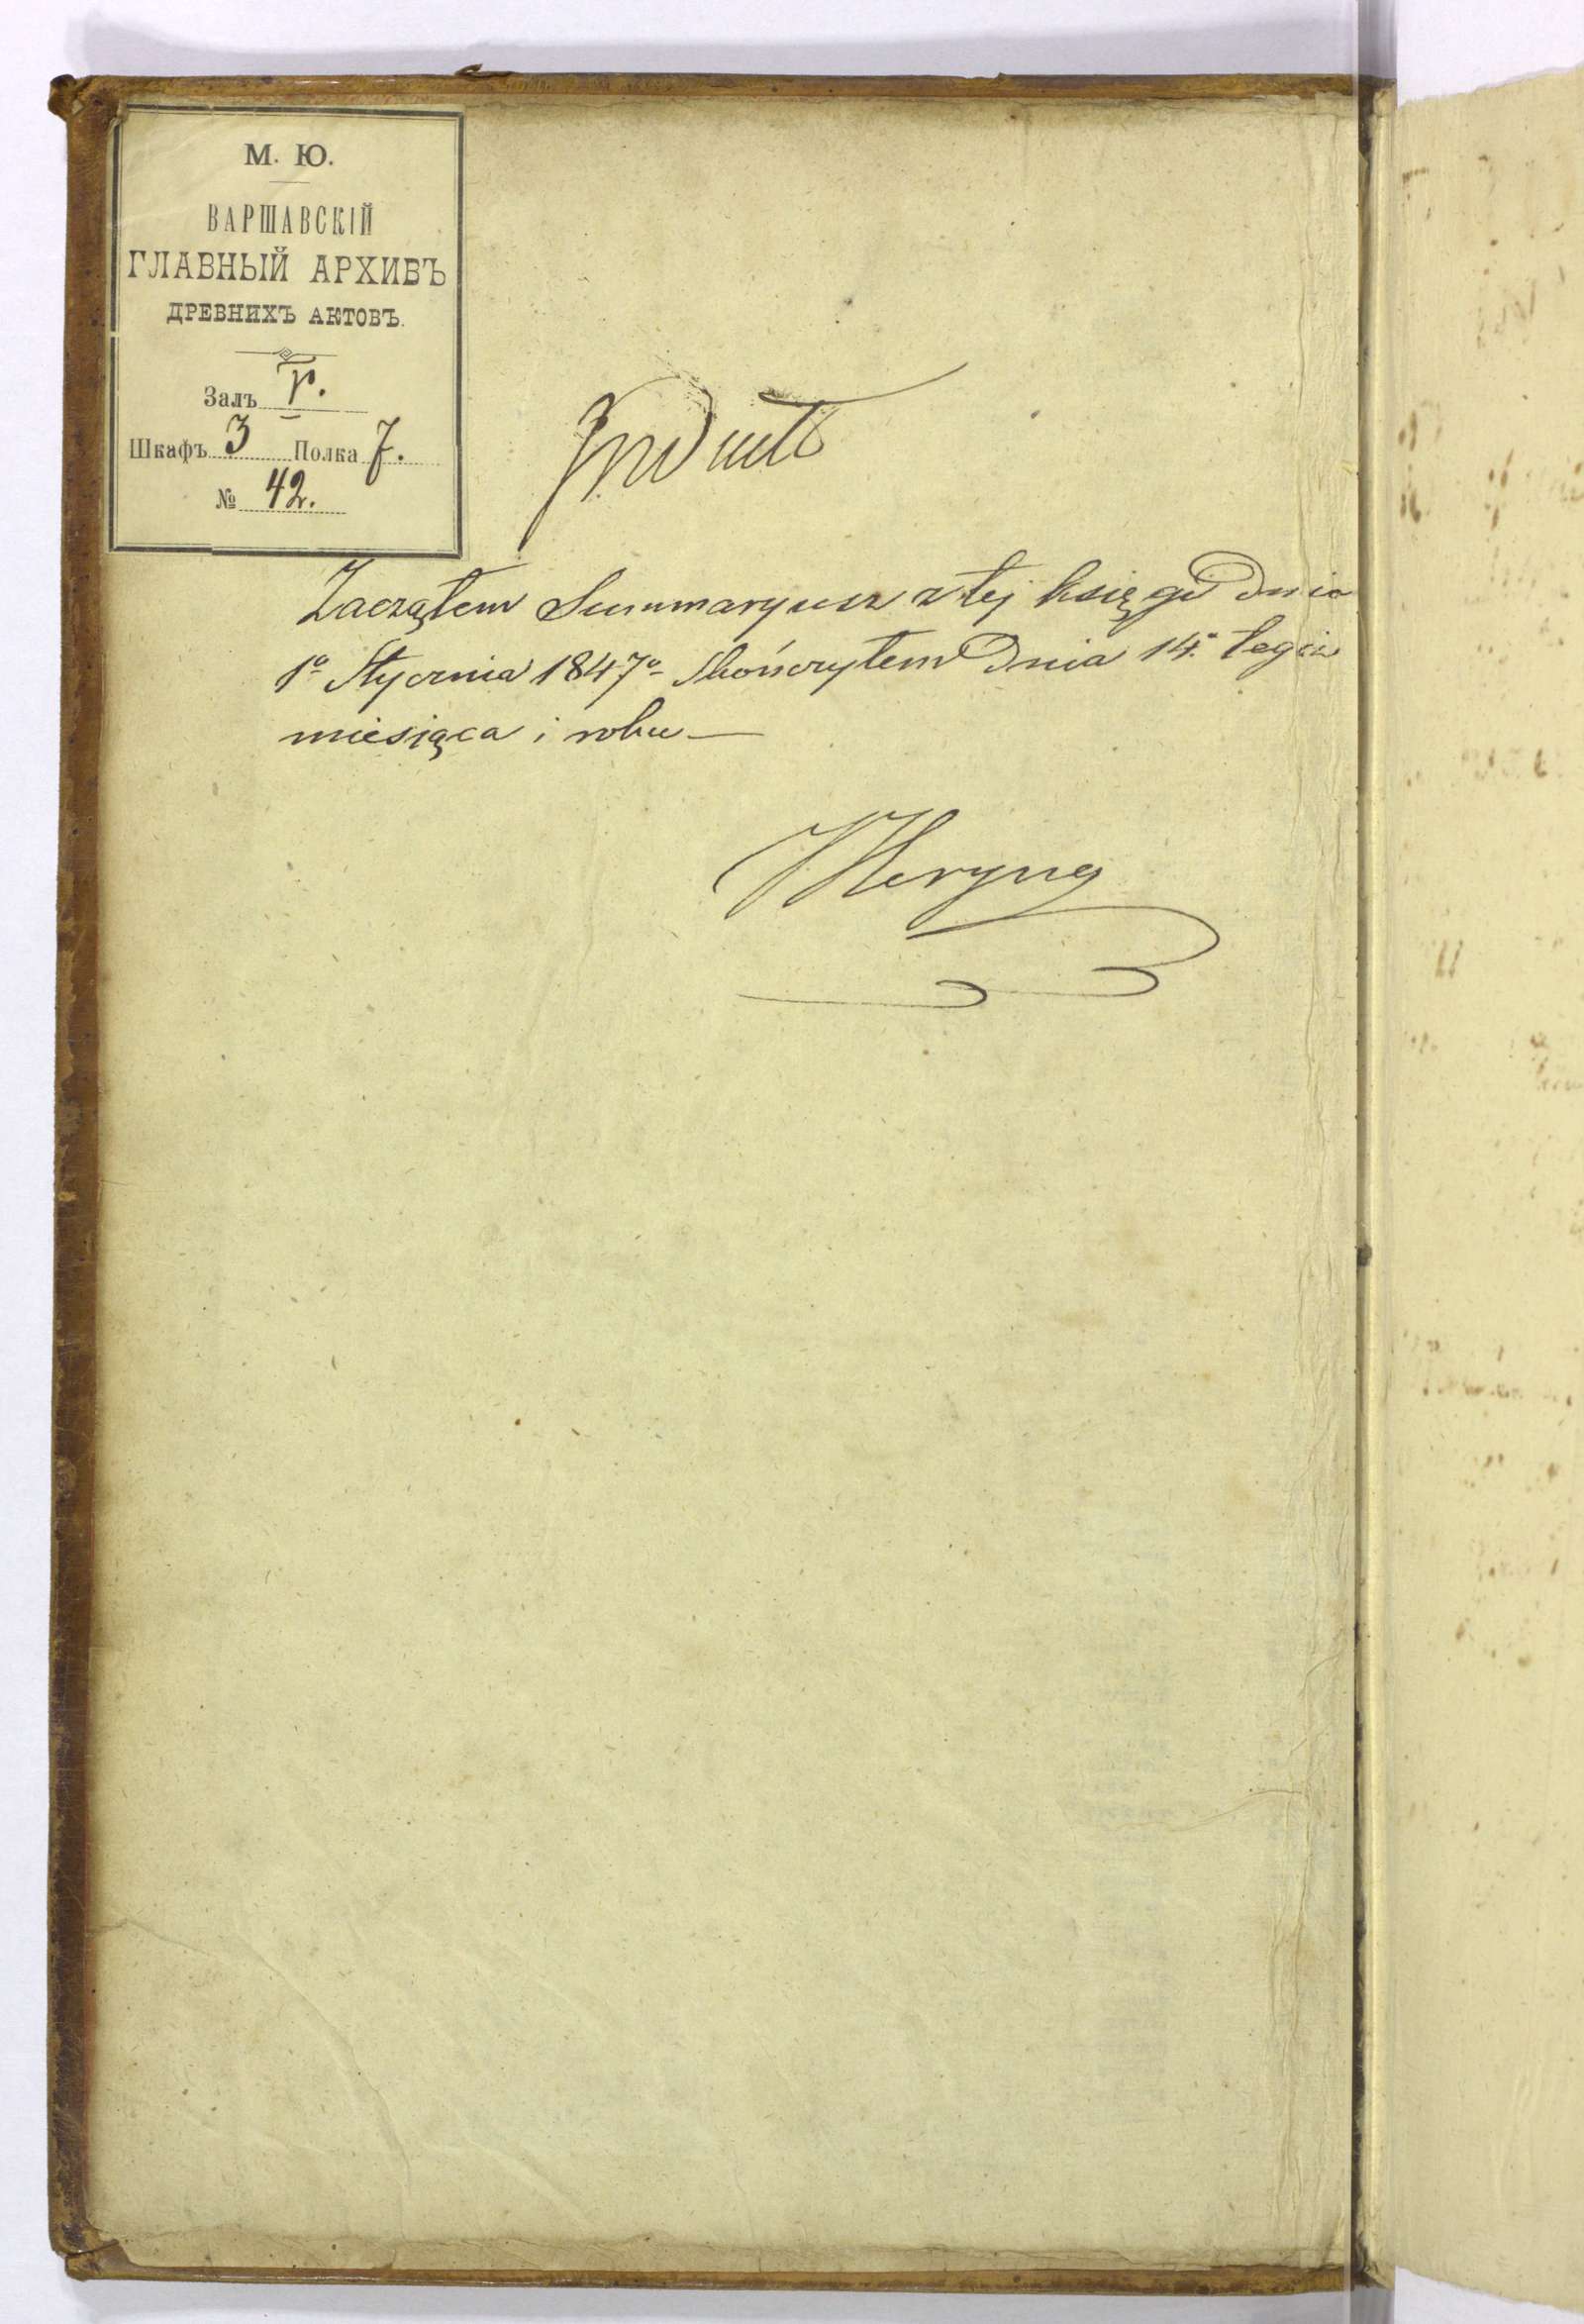 М. Ю.
ВАРШАВСКІЙ
ГЛАВНЫЙ АРХИВЪ
ДРЕВНИХЪ АКТОВЪ.
Залъ
Шкафъ 3 Полка 7.
№ 42.
Indukt
Zacząłem Summaryusz z tej księgi Dnia
1º Stycznia 1847º Skończyłem Dnia 14º tegoż
miesiąca i roku —
JHeryng